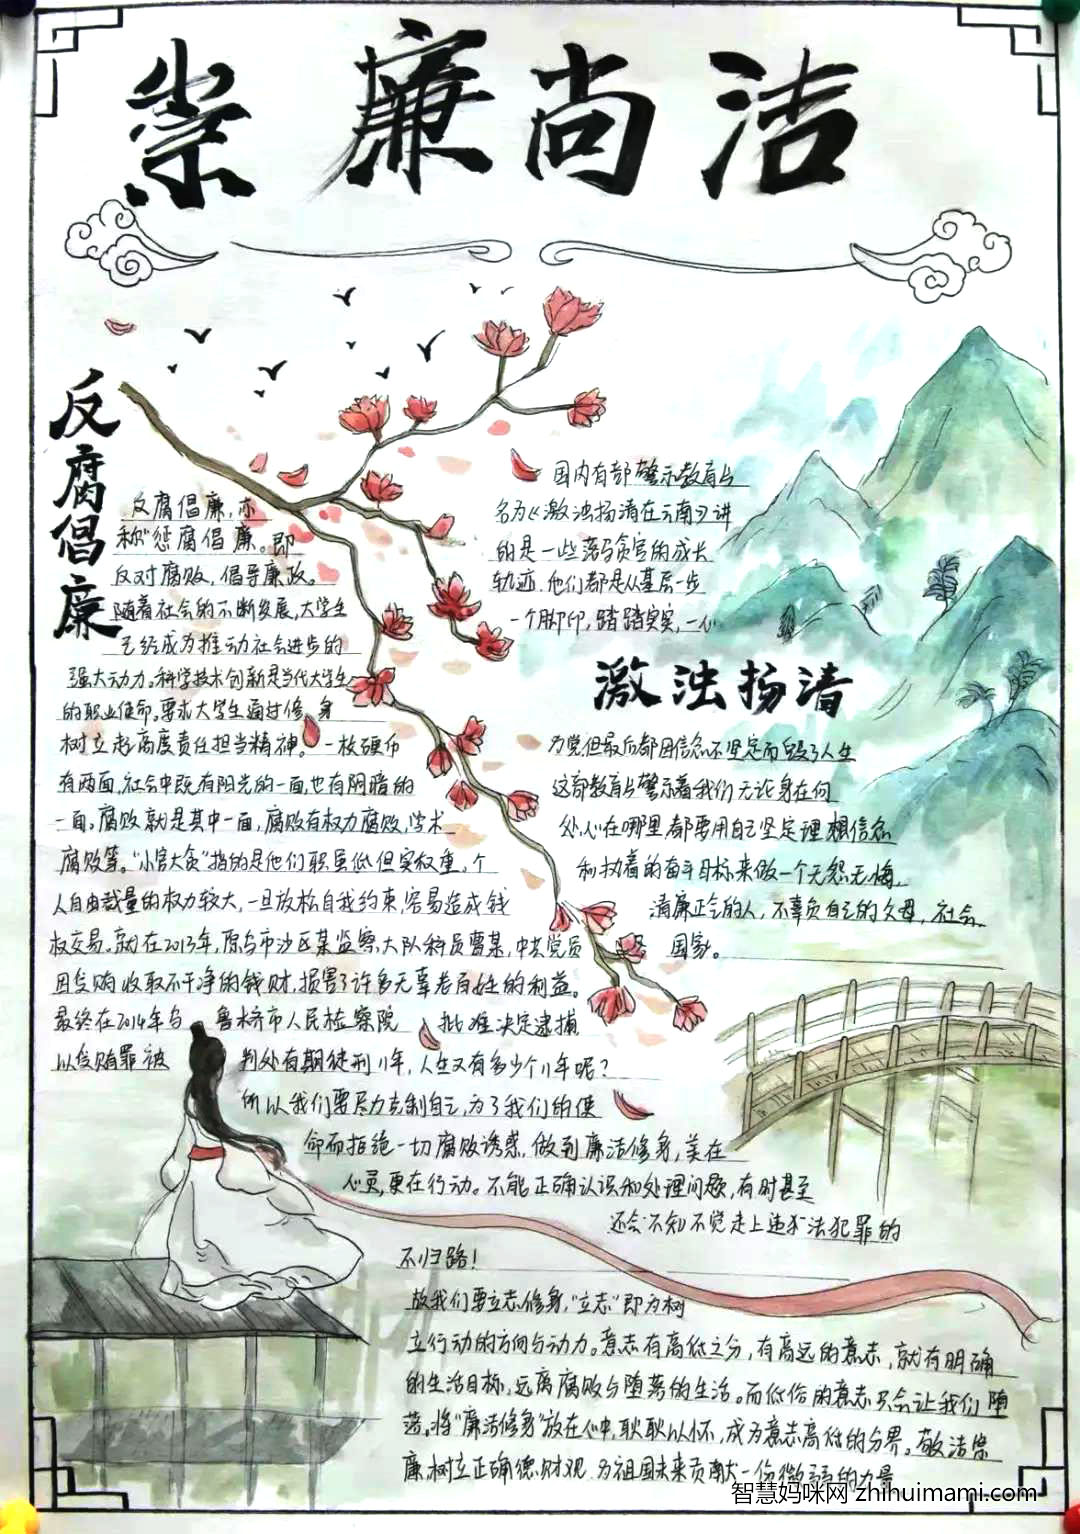 崇廉尚洁
反腐倡廉
反腐倡廉,亦
称"惩腐倡廉。即
反对腐败,倡导廉政。
随着社会的不断发展,大学生
已经成为推动社会进步的
强大动力。科学技术创新是当代大学生
的职业使命。要求大学生通过修身
树立起高度责任担当精神。一枚硬币
有两面,社会中既有阳光的一面,也有阴暗的
一面。腐败就是其中一面,腐败有权力腐败,学术
腐败等。"小官大贪"指的是他们职虽低但实权重。个
人自由裁量的权力较大,一旦放松自我约束,容易造成钱
权交易。就在2013年,原乌市沙区某监察大队科员曹某,中共党员
因受贿收取不干净的钱财,损害了许多无辜老百姓的利益。
最终在2014年乌鲁木齐市人民检察院批准决定逮捕
以受贿罪被判处有期徒刑11年,人生又有多少个11年呢?
所以我们要尽力克制自己,为了我们的使
命而拒绝一切腐败诱惑,做到廉洁修身,美在
心灵,更在行动。不能正确认识和处理问题,有时甚至
还会不知不觉走上违法犯罪的
不归路!
故我们要立志修身,"立志"即为树
立行动的方向与动力。意志有高低之分,有高远的意志,就有明确
的生活目标,远离腐败与堕落的生活。而低俗的意志只会让我们堕
落。将"廉洁修身"放在心中,耿耿以怀,成为意志高低的分界。敬洁崇
廉,树立正确德财观,为祖国未来贡献一份微弱的力量
国内有部警示教育片
名为《激浊扬清在云南》讲
的是一些落马贪官的成长
轨迹,他们都是从基层一步
一个脚印,踏踏实实,一心
激浊扬清
为党但最后都因信念不坚定而毁了人生
这部教育片警示着我们无论身在何
处,心在哪里都要用自己坚定理想信念
和执着的奋斗目标来做一个无怨无悔,
清廉正气的人,不辜负自己的父母,社会
国家。
智慧妈咪网 zhihuimami.com